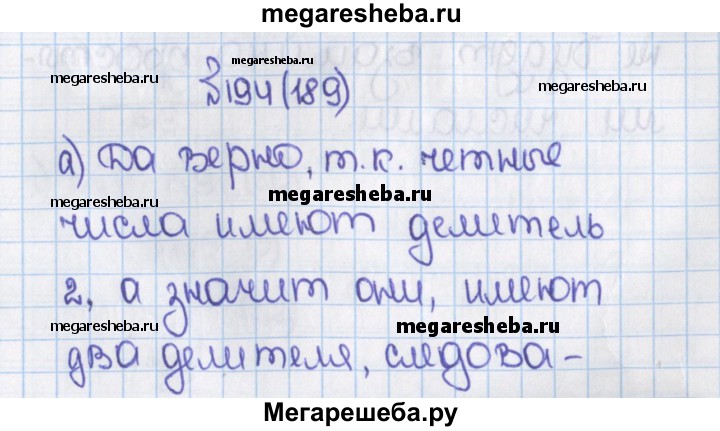 megaresheba.ru
megaresheba.ru
megaresheba.ru
№194(189)
megaresheba.ru
а) Да верно, т.к. четные
megaresheba.ru
числа имеют делитель
2, а значит они, имеют
megaresheba.ru
megaresheba.ru
два делителя, следова-
Мегарешеба.ру